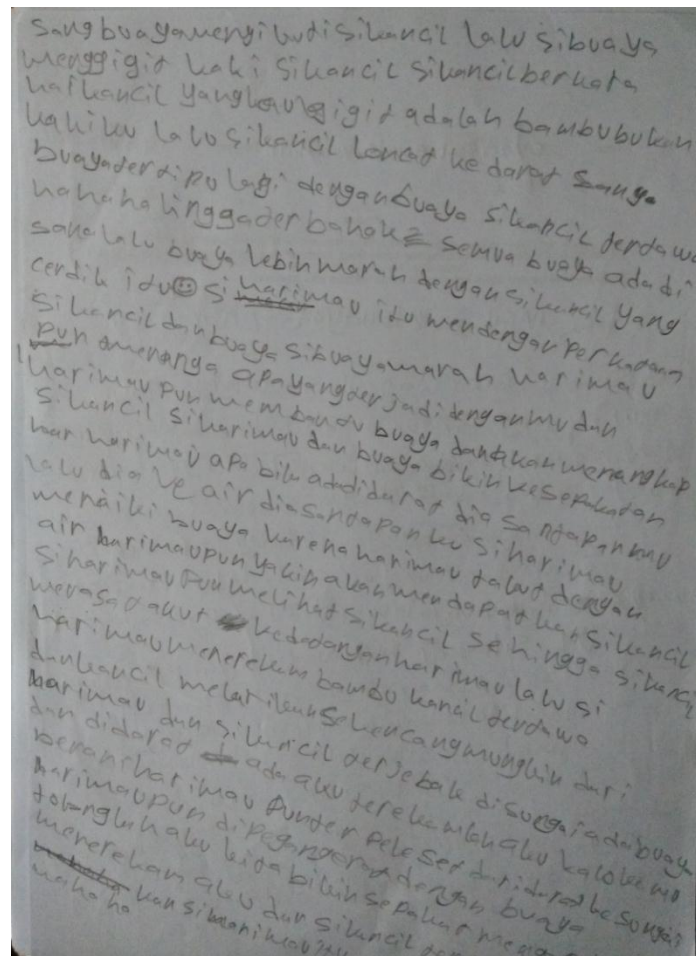 sang buaya mengikuti sikancil lalu sibuaya
menggigit kaki sikancil sikancil berkata
hai kancil yang kau gigit adalah bambu bukan
kakiku lalu sikancil loncat ke darat sang
buaya tertipu lagi dengan buaya sikancil tertawa
hahaha hingga terbahak2 semua buaya ada di
sana lalu buaya lebih marah dengan sikancil yang
cerdik itu☺ si harimau itu mendengar perkataan
sikancil dan buaya sibuaya marah harimau
pun menanya apa yang terjadi denganmu dan
harimau pun membantu buaya dan akan menangkap
sikancil siharimau dan buaya bikin kesepakatan
harimau apa bila ada didarat dia santapanmu
lalu dia ke air dia santapanku siharimau
menaiki buaya karena harimau takut dengan
air harimaupun yakin akan mendapatkan sikancil
siharimau pun melihat sikancil sehingga sikancil
merasa takut kedatangan harimau lalu si
harimau menerekam bambu kancil tertawa
dan kancil melarikan sekencang mungkin dari
harimau dan sikancil terjebak disungai ada buaya
dan didarat ada aku terekamlah aku kalo kamo
berani harimau pun terpeleset dari darat ke sungai
harimaupun dipegang erat dengan buaya
tolonglah aku kita bikin sepakat
menerekam aku dan sikancil
hahaha